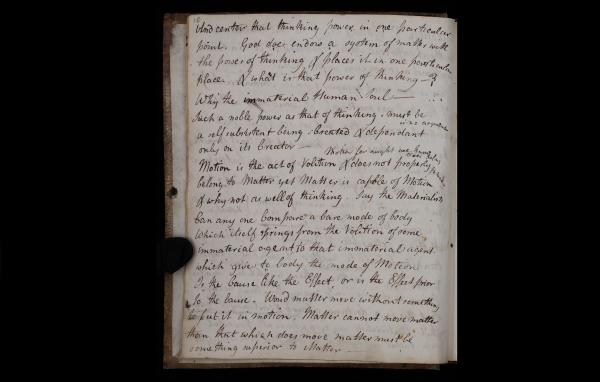 And center that thinking power in one particular
point. God doe, endow a system of matter with
the power of thinking & places it in one particular
place. & what is that power of thinking
Why the immaterial Human Soul
Such a noble power as that of thinking must be
a self subsistent being Created & dependant
only on its Creator
Motion for aught we know
Motion is the act of Volition & does not properly
belong to Matter yet Matter is capble of Motion
& why not as well of thinking. Say the Materialists
Can any one Compare a bare mode of body
Which itself springs from the Volition of some
immaterial agent to that immaterial agent
which give to body the mode of Motion
Is the Cause like the Effect, or is the Effect prior
to the Cause. Woud matter move without something
to put it in motion. Matter cannot move matter
then that which does move matter must be
something superior to Matter